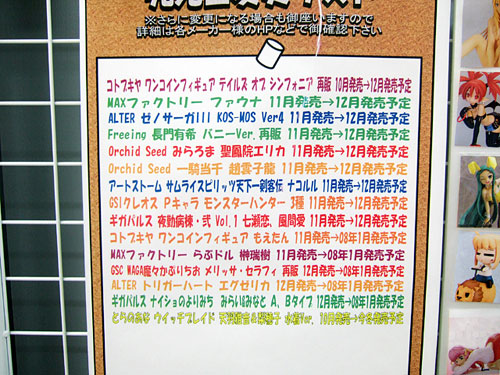 ※さらに変更になる場合も御座いますので
詳細は各メーカー様のHPなどで御確認下さい
コトブキヤ ワンコインフィギュア テイルズ オブ シンフォニア 再販 10月発売→12月発売予定
MAXファクトリー ファウナ 11月発売→12月発売予定
ALTER ゼノサーガIII KOS-MOS Ver4 11月発売→12月発売予定
Freeing 長門有希 バニーVer. 再販 11月発売→12月発売予定
Orchid Seed みらろま 聖鳳院エリカ 11月発売→12月発売予定
Orchid Seed 一騎当千 趙雲子龍 11月発売→12月発売予定
アートストーム サムライスピリッツ天下一剣客伝 ナコルル 11月発売→12月発売予定
GSIクレオス Pキャラ モンスターハンター 3種 11月発売→12月発売予定
ギガパルス 夜勤病棟・弐 Vol.1 七瀬恋、風間愛 11月発売→12月発売予定
コトブキヤ ワンコインフィギュア もえたん 11月発売→08年1月発売予定
MAXファクトリー らぶドル 榊瑞樹 11月発売→08年1月発売予定
GSC MAGA魔々かぷりちお メリッサ・セラフィ 再販 12月発売→08年1月発売予定
ALTER トリガーハート エグゼリカ 12月発売→08年1月発売予定
ギガパルス ナイショのよりみち みらい&みなと A、Bタイプ 12月発売→08年1月発売予定
とらのあな ウィッチブレイド 水着Ver. 10月発売→今冬発売予定